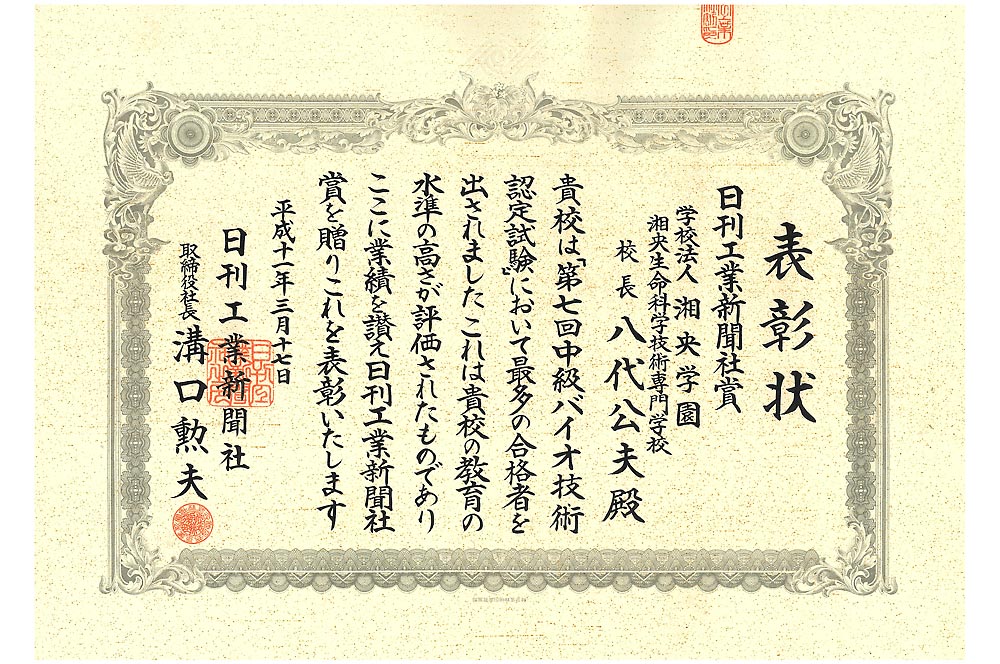 表彰状
日刊工業新聞社賞
学校法人 湘央学園
湘央生命科学技術専門学校
校長 八代公夫殿
貴校は「第七回中級バイオ技術
認定試験」において最多の合格者を
出されました これは貴校の教育の
水準の高さが評価されたものであり
ここに業績を讃え日刊工業新聞社
賞を贈りこれを表彰いたします
平成十一年三月十七日
日刊工業新聞社
取締役社長 溝口勲夫